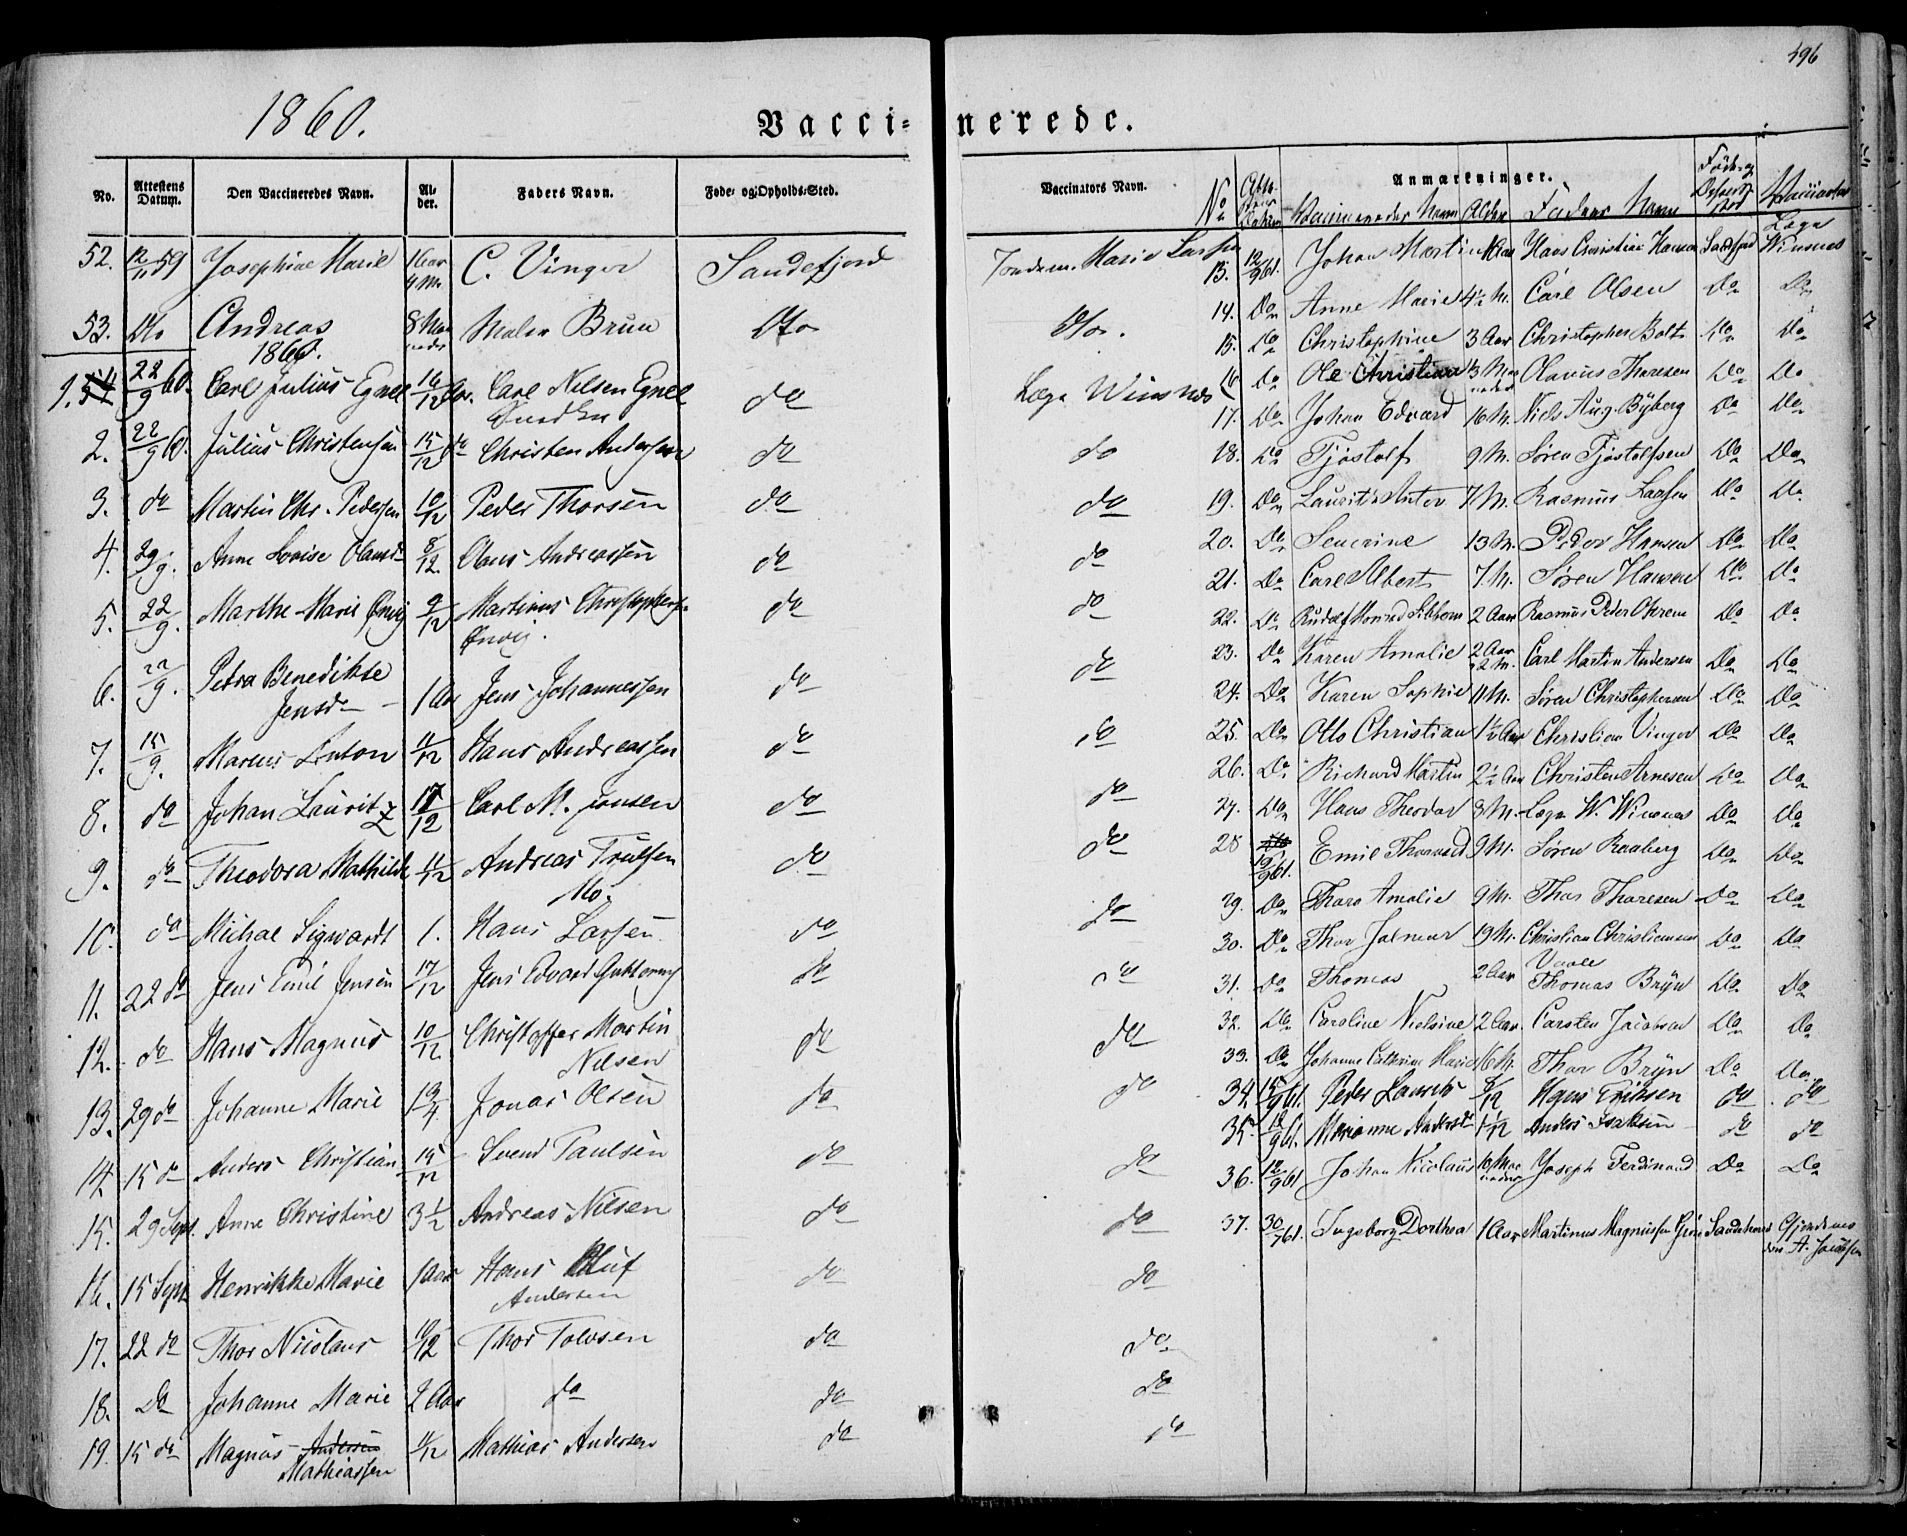 496
1860.
Vacci=nerede.
No. Attestens Datum. Den Vaccineredes Navn. Alder. Faders Navn. Føde- og Opholds-Sted. Vaccinators Navn.
52. 12/11 59 Josephine Marie 1 Aar 4 M. C. Vinger Sandefjord Marie Larsen
53. Do Andreas 8 Maaneder Maler Brun Do Do.
1860.
1. 22/9 60. Carl Julius Egnel 16/12 Aar. Carl Nilsen Egnel do Læge Winsnes
2. 22/9 60. Julius Christensen 15/12 do Christen Andersen do do
3. do Martin Chr. Pedersen 10/12 Peder Thorsen do do
4. 29/9. Anne Lovise Olausd 8/12. Olaus Andreassen do do
5. 22/9. Marthe Marie 9/12 Martinus do do
6. 22/9. Petra Benedikte Jensd 1 Aar Jens Johannessen do do
7. 15/9. Marcus Anton 11/12 Hans Andreassen do do
8. do Johan Lauritz 17/12 Carl M. Jonsen do do
9. do Theodora Mathilde 11/12 Andreas Trulsen Mo. do do
10. do Michal Sigvardt 1. Hans Larsen do do
11. 22 do Jens Emil Jensen 17/12 Jens Edvard Guttormsen do do
12. do Hans Magnus 10/12 Christoffer Martin Nilsen do do
13. 29 do Johanne Marie Jonas Olsen do do
14. 15 do Anders Christian 15/12 Svend Paulsen do do
15. 29 Sept. Anne Christine 3 1/2 Andreas Nilsen do do
16. 15 Sept Henrikke Marie 1 Aar Hans Oluf Andersen do do
17. 22 do Thor Nicolaus 10/12 Thor Tolvsen do do
18. Do Johanne Marie 2 Aar do do do
19. 15 do Magnus Andersen Mathiassen 11/12 Mathias Andersen do do
Anmærkninger.
No Attestens Datum Vaccineredes Navn Alder Faders Navn Føde og Opholds Sted Vaccinator
13. 12/9 61. Johan Martin Hans Christian Hansen Sandefjord Læge Winsnes
14. Do Anne Marie 4 1/2 M. Carl Olsen Do Do
15. Do Christophine 3 Aar Christopher Bolt Do Do
16 Do Ole Christian 13 Maaneder Olavus Thoresen Do Do
17. Do Johan Edvard 16 M. Niels Aug. Byberg Do Do
18. Do Tjøstolf 9 M. Søren Tjøstolfsen Do Do
19. Do Lauritz Anton 7 M. Rasmus Larsen Do Do
20. Do Severine 13 M. Peder Hansen Do Do
21. Do Carl Albert 7 M. Søren Hansen Do Do
22. Do Rudolf Konrad 2 Aar Rasmus Peder Do Do
23. Do Karen Amalie 2 Aar 2 M. Carl Martin Andersen Do Do
24. Do Karen Sophie 11 M. Søren Christophersen Do Do
25. Do Otto Christian 1 1/2 Aar Christian Vinger Do Do
26. Do Richard Martin 2 1/2 Aar Christen Arnesen Do Do
27. Do Hans Theodor 8 M. Læge W. Winsnes Do Do
28 19/9 61. Emil Thorvald 9 M. Søren Raaberg Do Do
29. Do Thora Amalie 9 M. Thor Thoresen Do Do
30. Do Thor Jalmar 19 M. Christian Christiansen Do Do
31. Do Thomas 2 Aar Thomas Bryn Do Do
32. Do Caroline Nielsine 2 Aar. Carsten Jacobsen Do Do
33. Do Johanne Cathrine Marie 16 M. Thor Bryn Do Do
34. 15/9 61. Peder Lauritz 8/12 Hans Eriksen do do
35. 12/9 61. Marianne Andersd 1 1/12 Anders Isaksen do do
36. 12/9 61 Johan Nicolaus 10 Maaneder Joseph Ferdinand Do Do
37. 30/7 61. Ingeborg Dorthea 1 Aar Martinus Magnussen A. Jacobsen